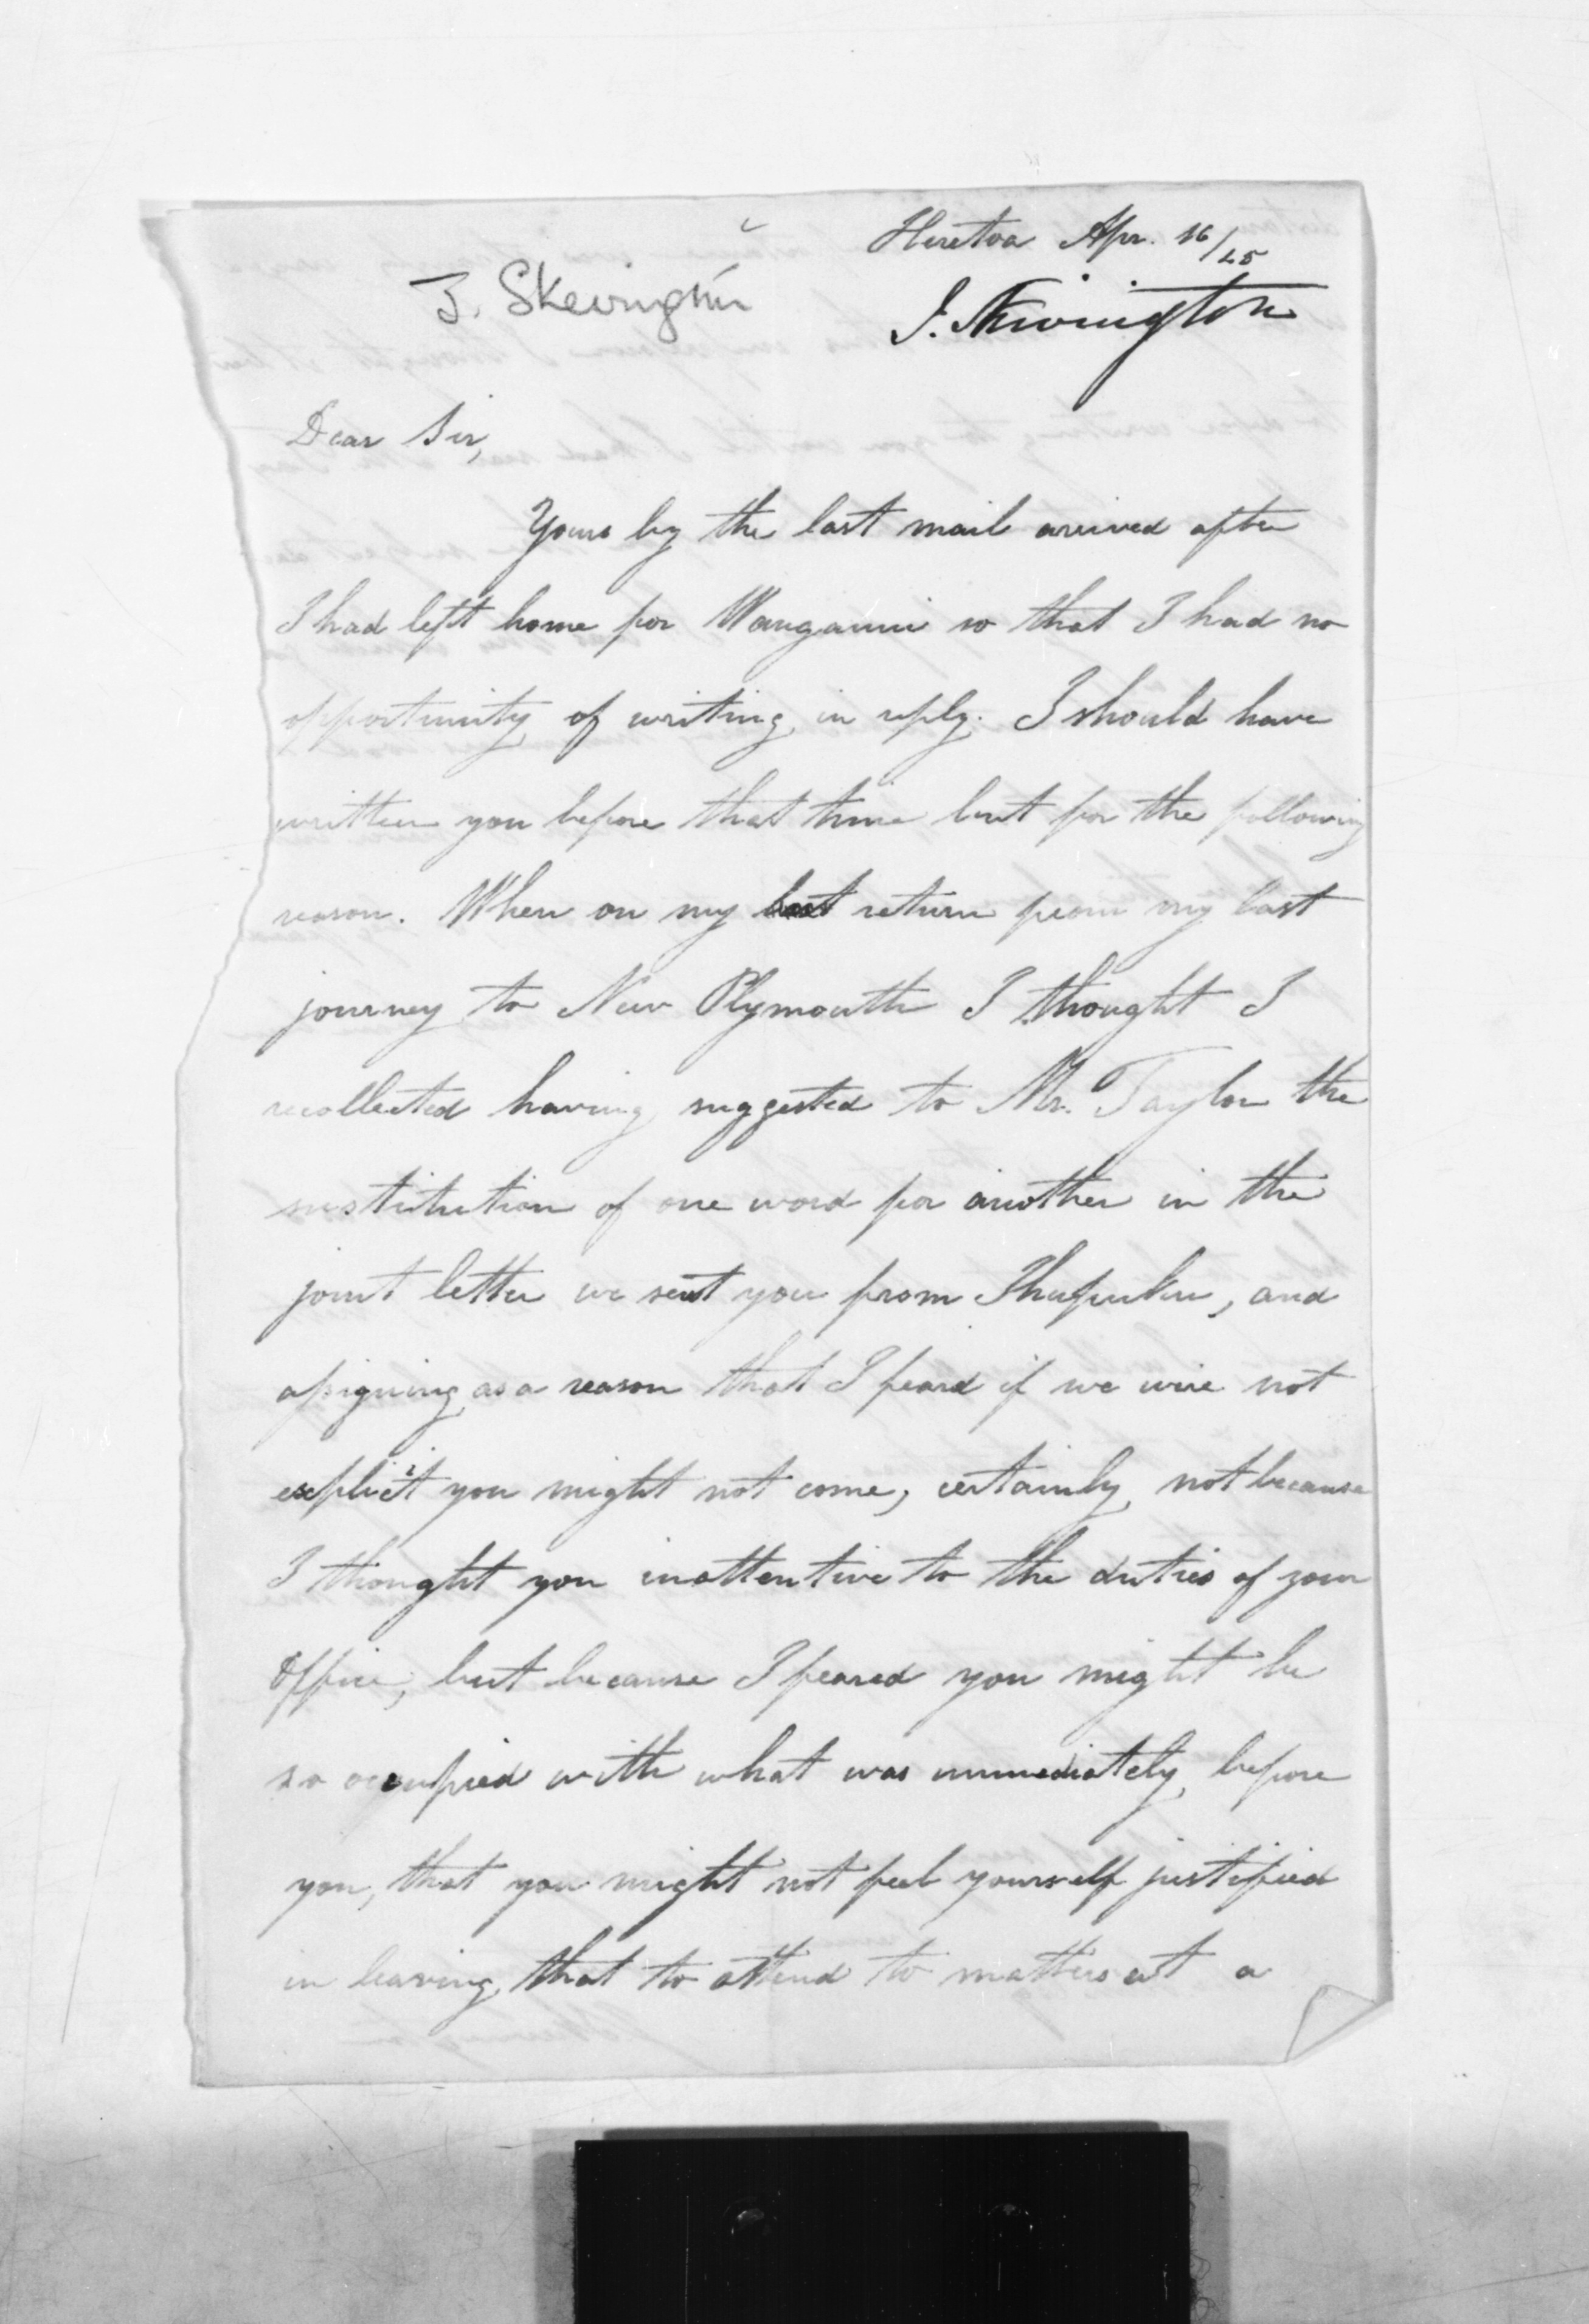 Heretoa Apr. 16/45
J. Skevington
J. Skevington
Dear Sir,
Yours by the last mail arived after
I had left home for Wanganui so that I had no
opportunity of writing in reply. I should have
written you before that time but for the following
reason. When on my return from my last
journey to New Plymouth I thought I
recollected having suggested to Mr. Taylor the
institution of one word for another in the
joint letter we sent you from Ihupuku, and
assigning as a reason that I feard if we were not
explicit you might not come, certainly not because
I thought you inattentive to the duties of your
office, but because I feared you might be
so occupied with what was immediately before
you, that you might not feel yourself justified
in leaving that to attend to matters at a